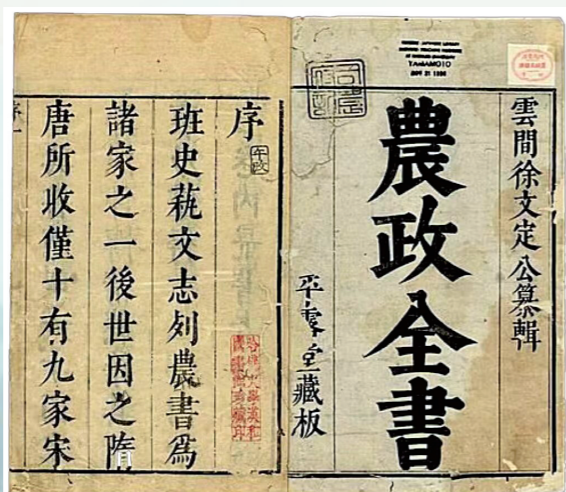 雲間徐文定公纂輯
農政全書
平露堂藏板
YAMAMOTO
序
班史蓺文志列農書爲
諸家之一後世因之隋
唐所收僅十有九家宋